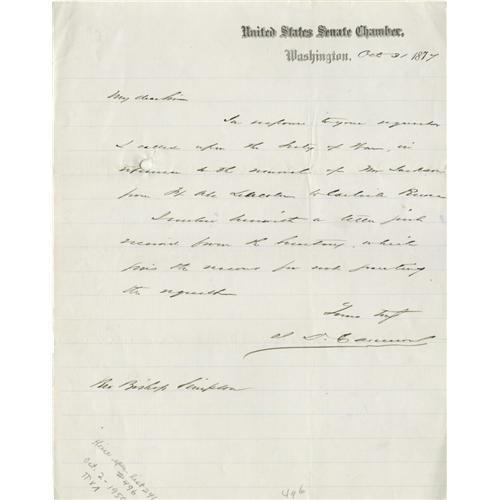 United States Senate Chamber,
Washington. Oct 31 1877
My dear Sir
In response to your request
I called upon the Secty of War, in
reference to the removal of Mr Jackson
from Ft Abe Lincoln to Carlisle
I enclose herewith a letter just
received from the Secretary, which
gives the reasons for not granting
the request
Yours truly
J. D. Cameron
Rev Bishop Simpson
list 241
#496
Oct. 2 - 1950
496